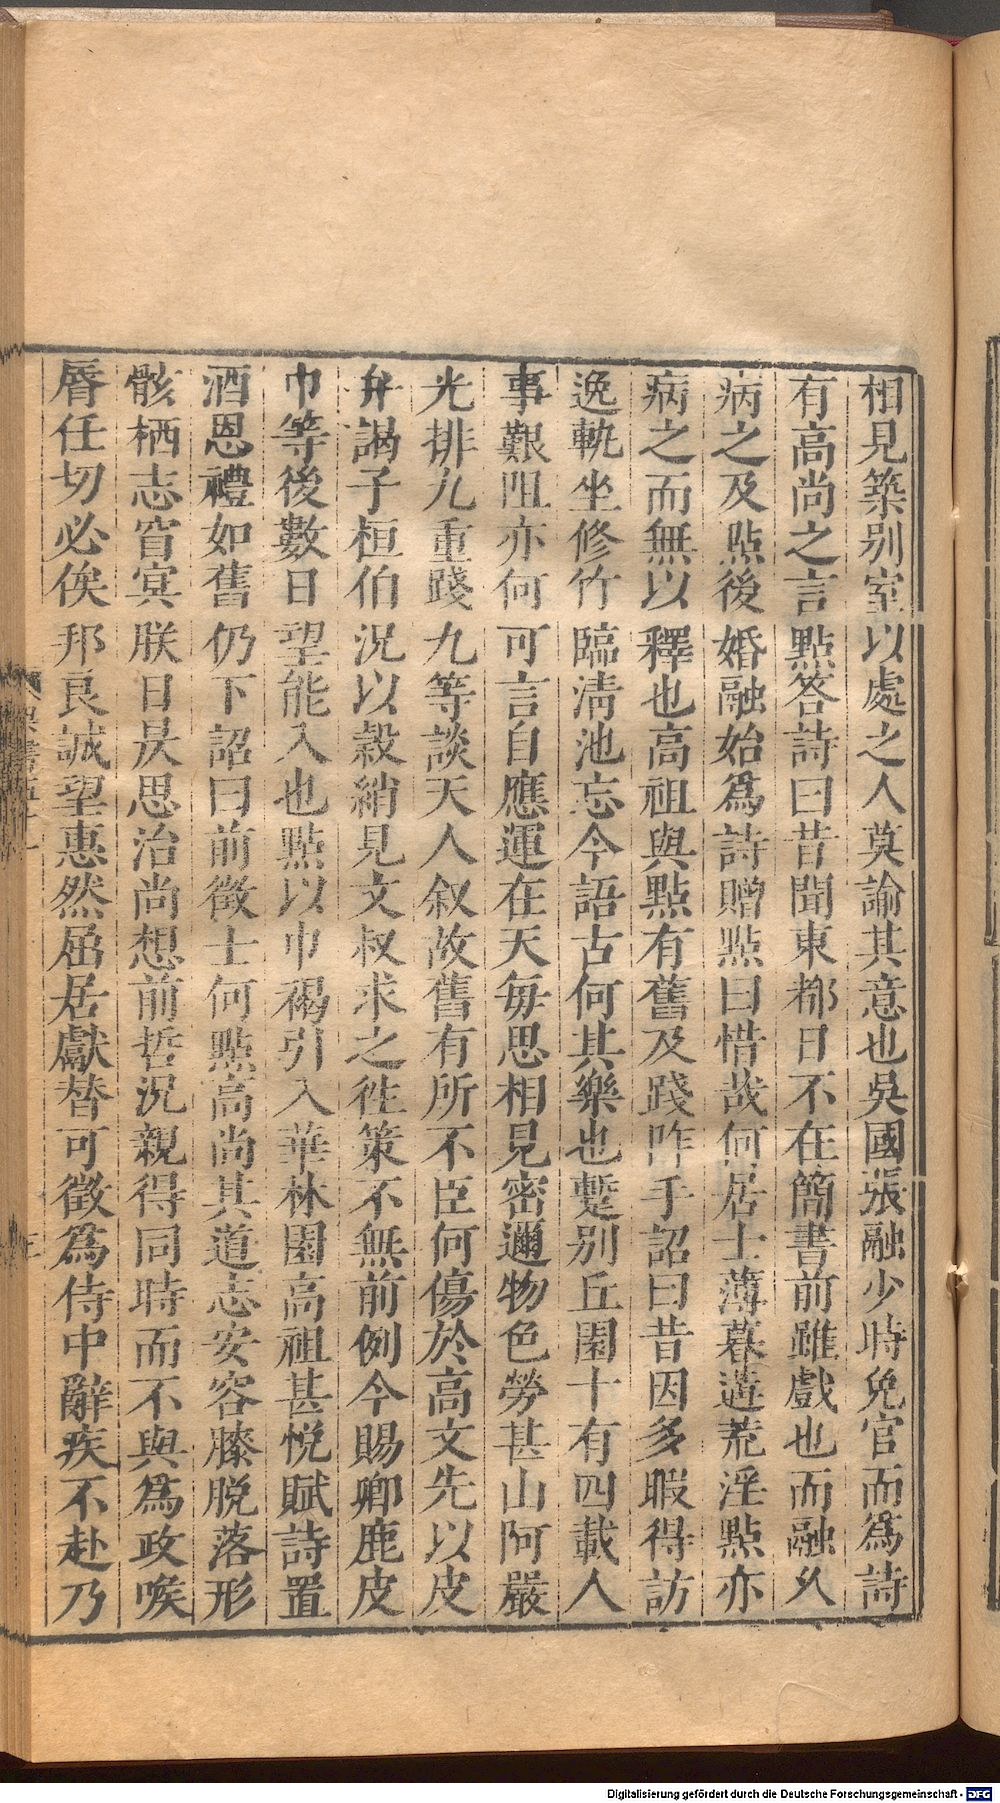 相見築別室以處之人莫諭其意也吳國張融少時免官而爲詩
有高尚之言點答詩曰昔聞東都日不在簡書前雖戲也而融久
病之及點後婚融始爲詩贈點曰惜哉何居士薄暮遘荒淫點亦
病之而無以釋也高祖與點有舊及踐阼手詔曰昔因多暇得訪
逸軌坐修竹臨清池忘今語古何其樂也蹔別丘園十有四載人
事艱阻亦何可言自應運在天每思相見密邇物色勞甚山阿嚴
光排九重踐九等談天人叙故舊有所不臣何傷於高文先以皮
弁謁子桓伯況以縠綃見文叔求之徃策不無前例今賜卿鹿皮
巾等後數日望能入也點以巾褐引入華林園高祖甚悅賦詩置
酒恩禮如舊仍下詔曰前徵士何點高尚其道志安容膝脫落形
骸栖志窅冥朕日昃思治尚想前哲況親得同時而不與爲政喉
脣任切必俟邦良誠望惠然屈居獻替可徵爲侍中辭疾不赴乃
Digitalisierung gefördert durch die Deutsche Forschungsgemeinschaft - DFG